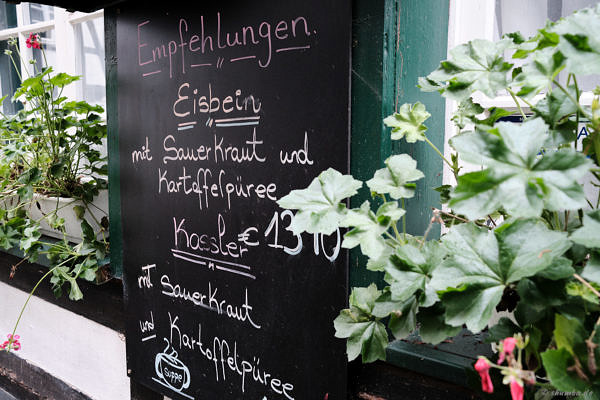 Empfehlungen.
Eisbein
mit Sauerkraut und
Kartoffelpüree
Kassler € 13
mit Sauerkraut
und Kartoffelpüree
Suppe